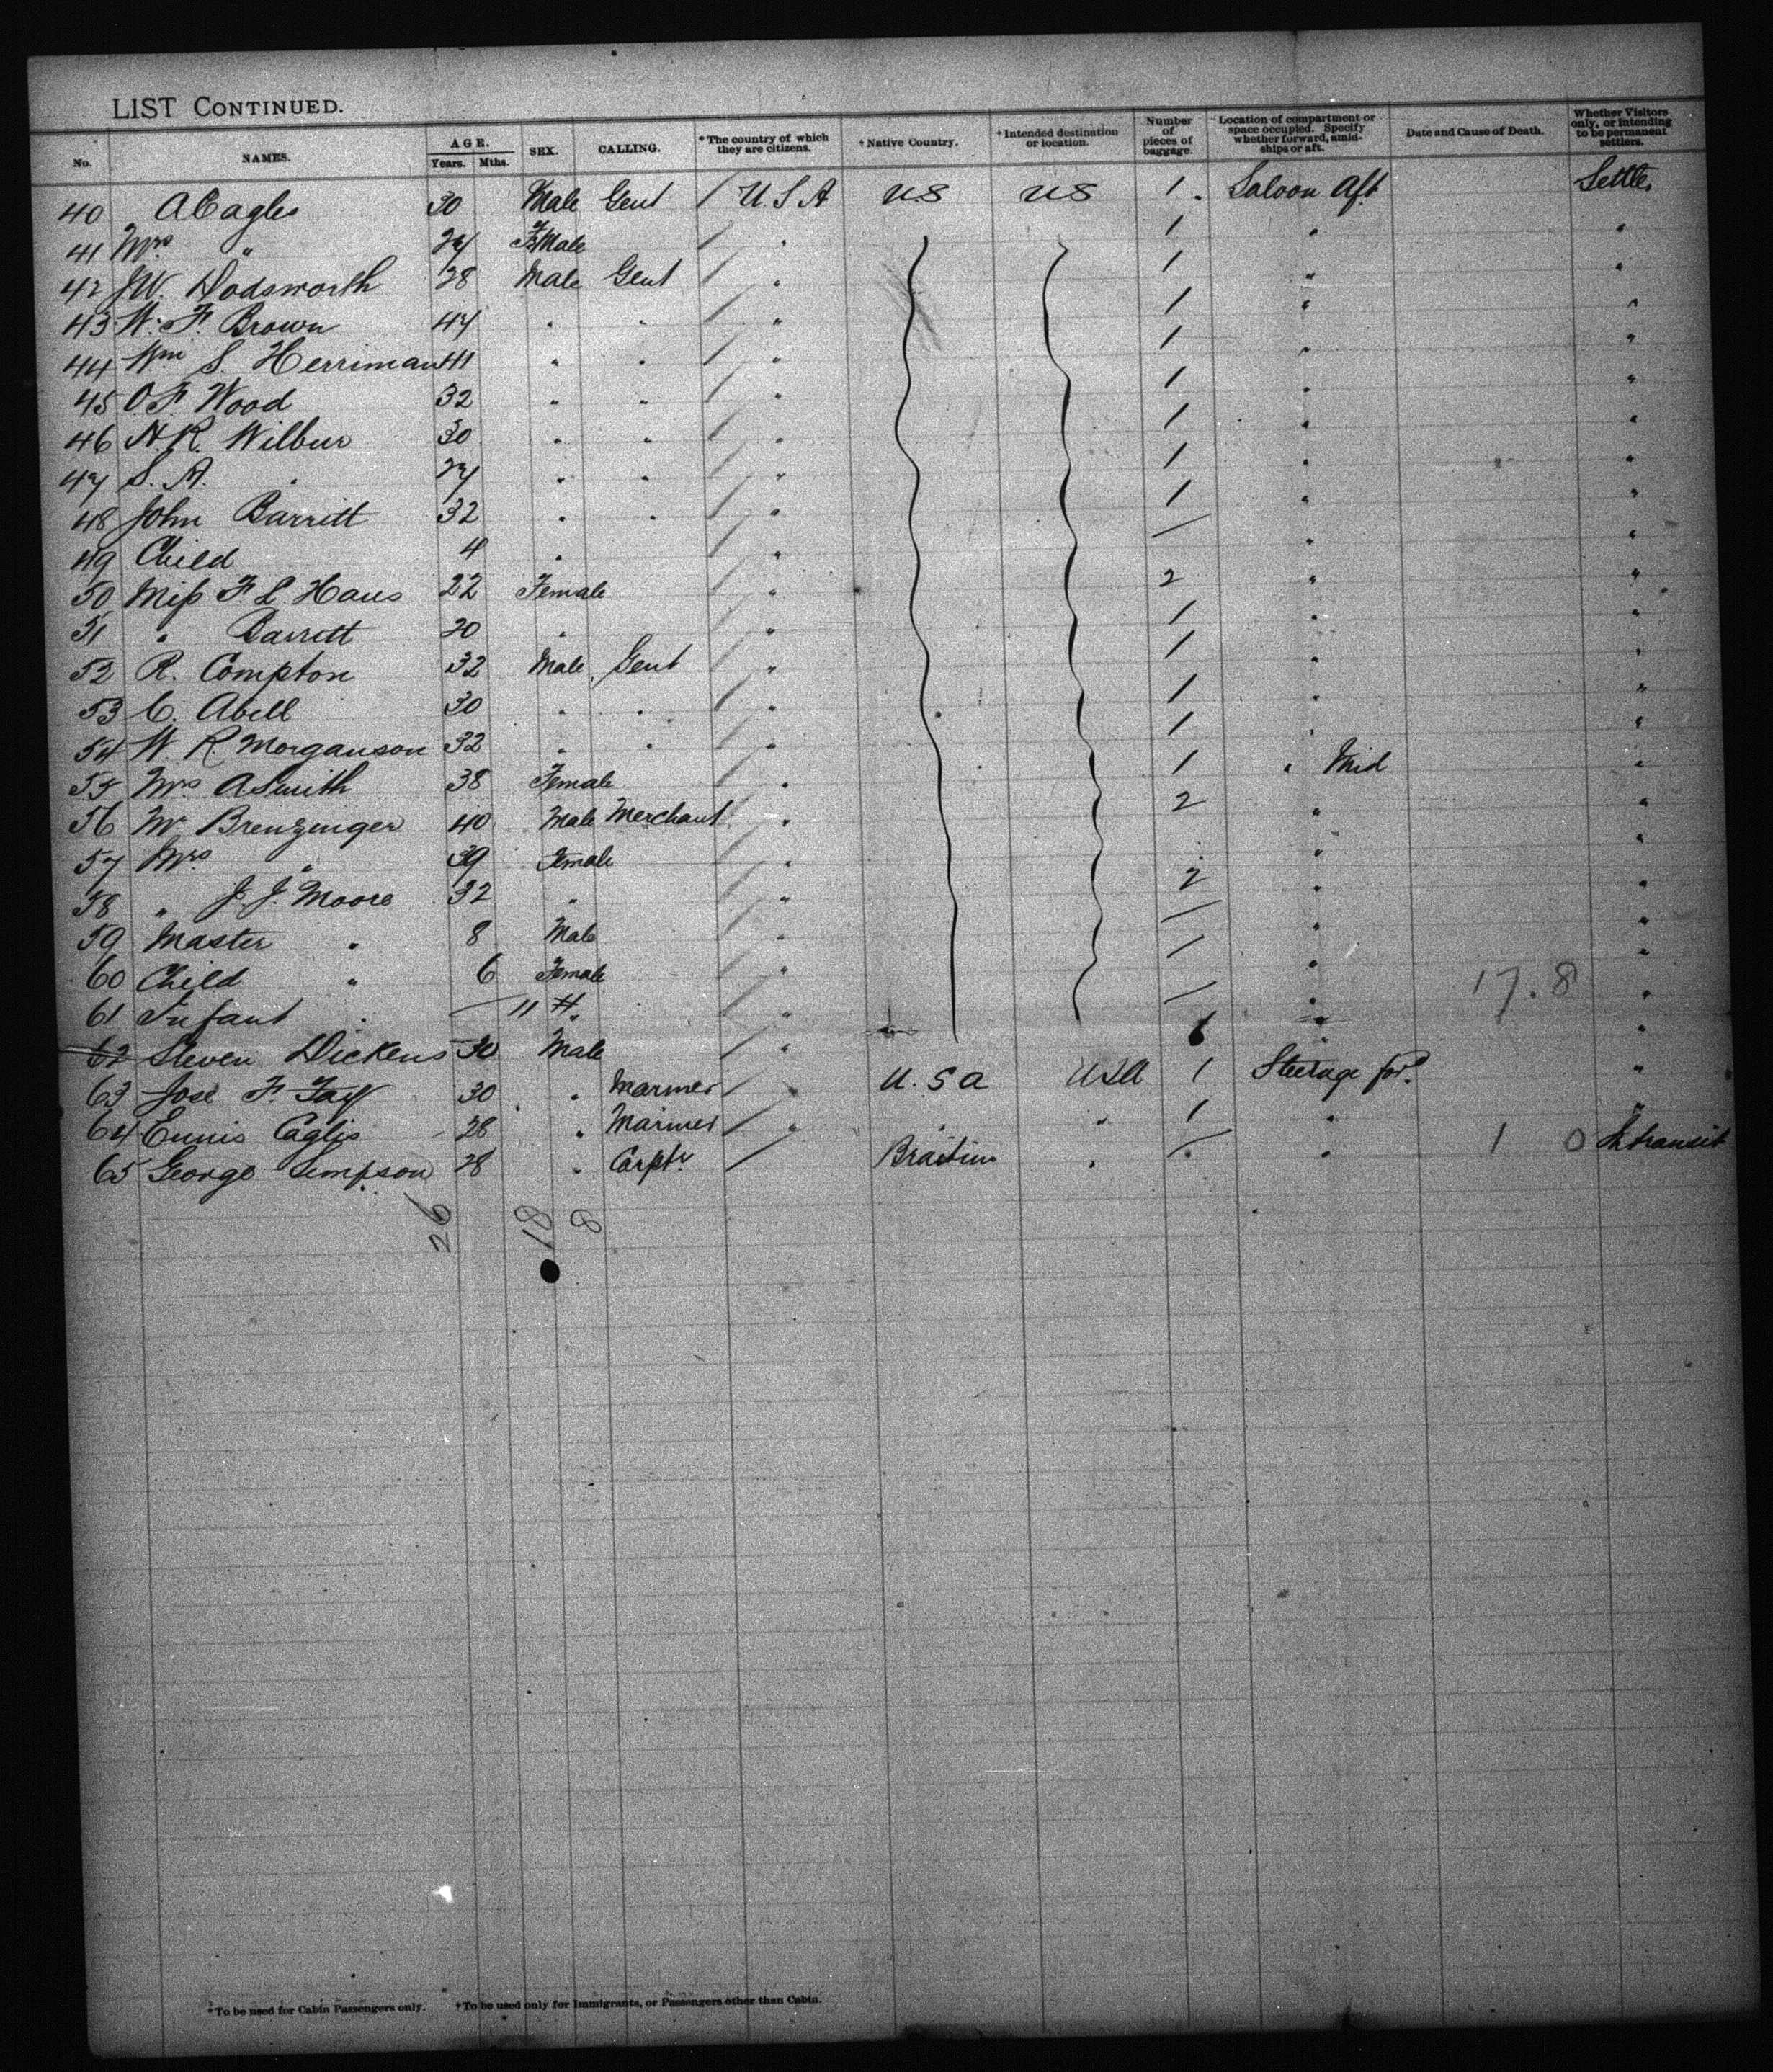 LIST CONTINUED.
No. NAMES. AGE. Years. Mths. SEX. CALLING. *The country of which they are citizens. †Native Country. †Intended destination or location. Number of pieces of baggage. Location of compartment or space occupied. Specify whether forward, amidships or aft. Date and Cause of Death. Whether Visitors only, or intending to be permanent settlers.
40 A Cagles 30 Male Gent / U.S.A U.S U.S 1 Saloon Aft Settle
41 Mrs " 27 Female / " 1 " "
42 J.W. Dodsworth 28 Male Gent / " 1 " "
43 W. F. Brown 47 " " / " 1 " "
44 Wm S. Herriman 41 " " / " 1 " "
45 O.F. Wood 32 " " / " 1 " "
46 H.R. Wilbur 30 " " / " 1 " "
47 S. A. " 27 " " / " 1 " "
48 John Barritt 32 " " / " 1 " "
49 Child 4 " / " — " "
50 Miss F. L. Haus 22 Female / " 2 " "
51 " Barritt 20 " / " 1 " "
52 R. Compton 32 Male Gent / " 1 " "
53 C. Abell 30 " " / " 1 " "
54 W. R Morganson 32 " " / " 1 " "
55 Mrs A Smith 38 Female / " 1 " Mid "
56 Mr Brenzinger 40 Male Merchant / " 2 " "
57 Mrs " 39 Female / " " "
58 " J. J. Moore 32 " / " 2 " "
59 Master " 8 Male / " — " "
60 Child " 6 Female / " — " "
61 Infant " — 11 " / " — " 17. 8 "
62 Steven Dickens 30 Male / " "
63 Jose F. Fay 30 " Mariner / " U.S a USA 1 Steerage for. "
64 Ennis Caglis 28 " Mariner / " " " 1 " "
65 George Simpson 28 " Carptr / " — " 1 0 In transit
26 18 8
*To be used for Cabin Passengers only. †To be used only for Immigrants, or Passengers other than Cabin.